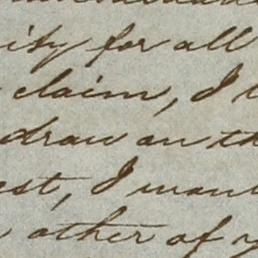 ity for all
claim, I
draw on th
est, I want
other of y